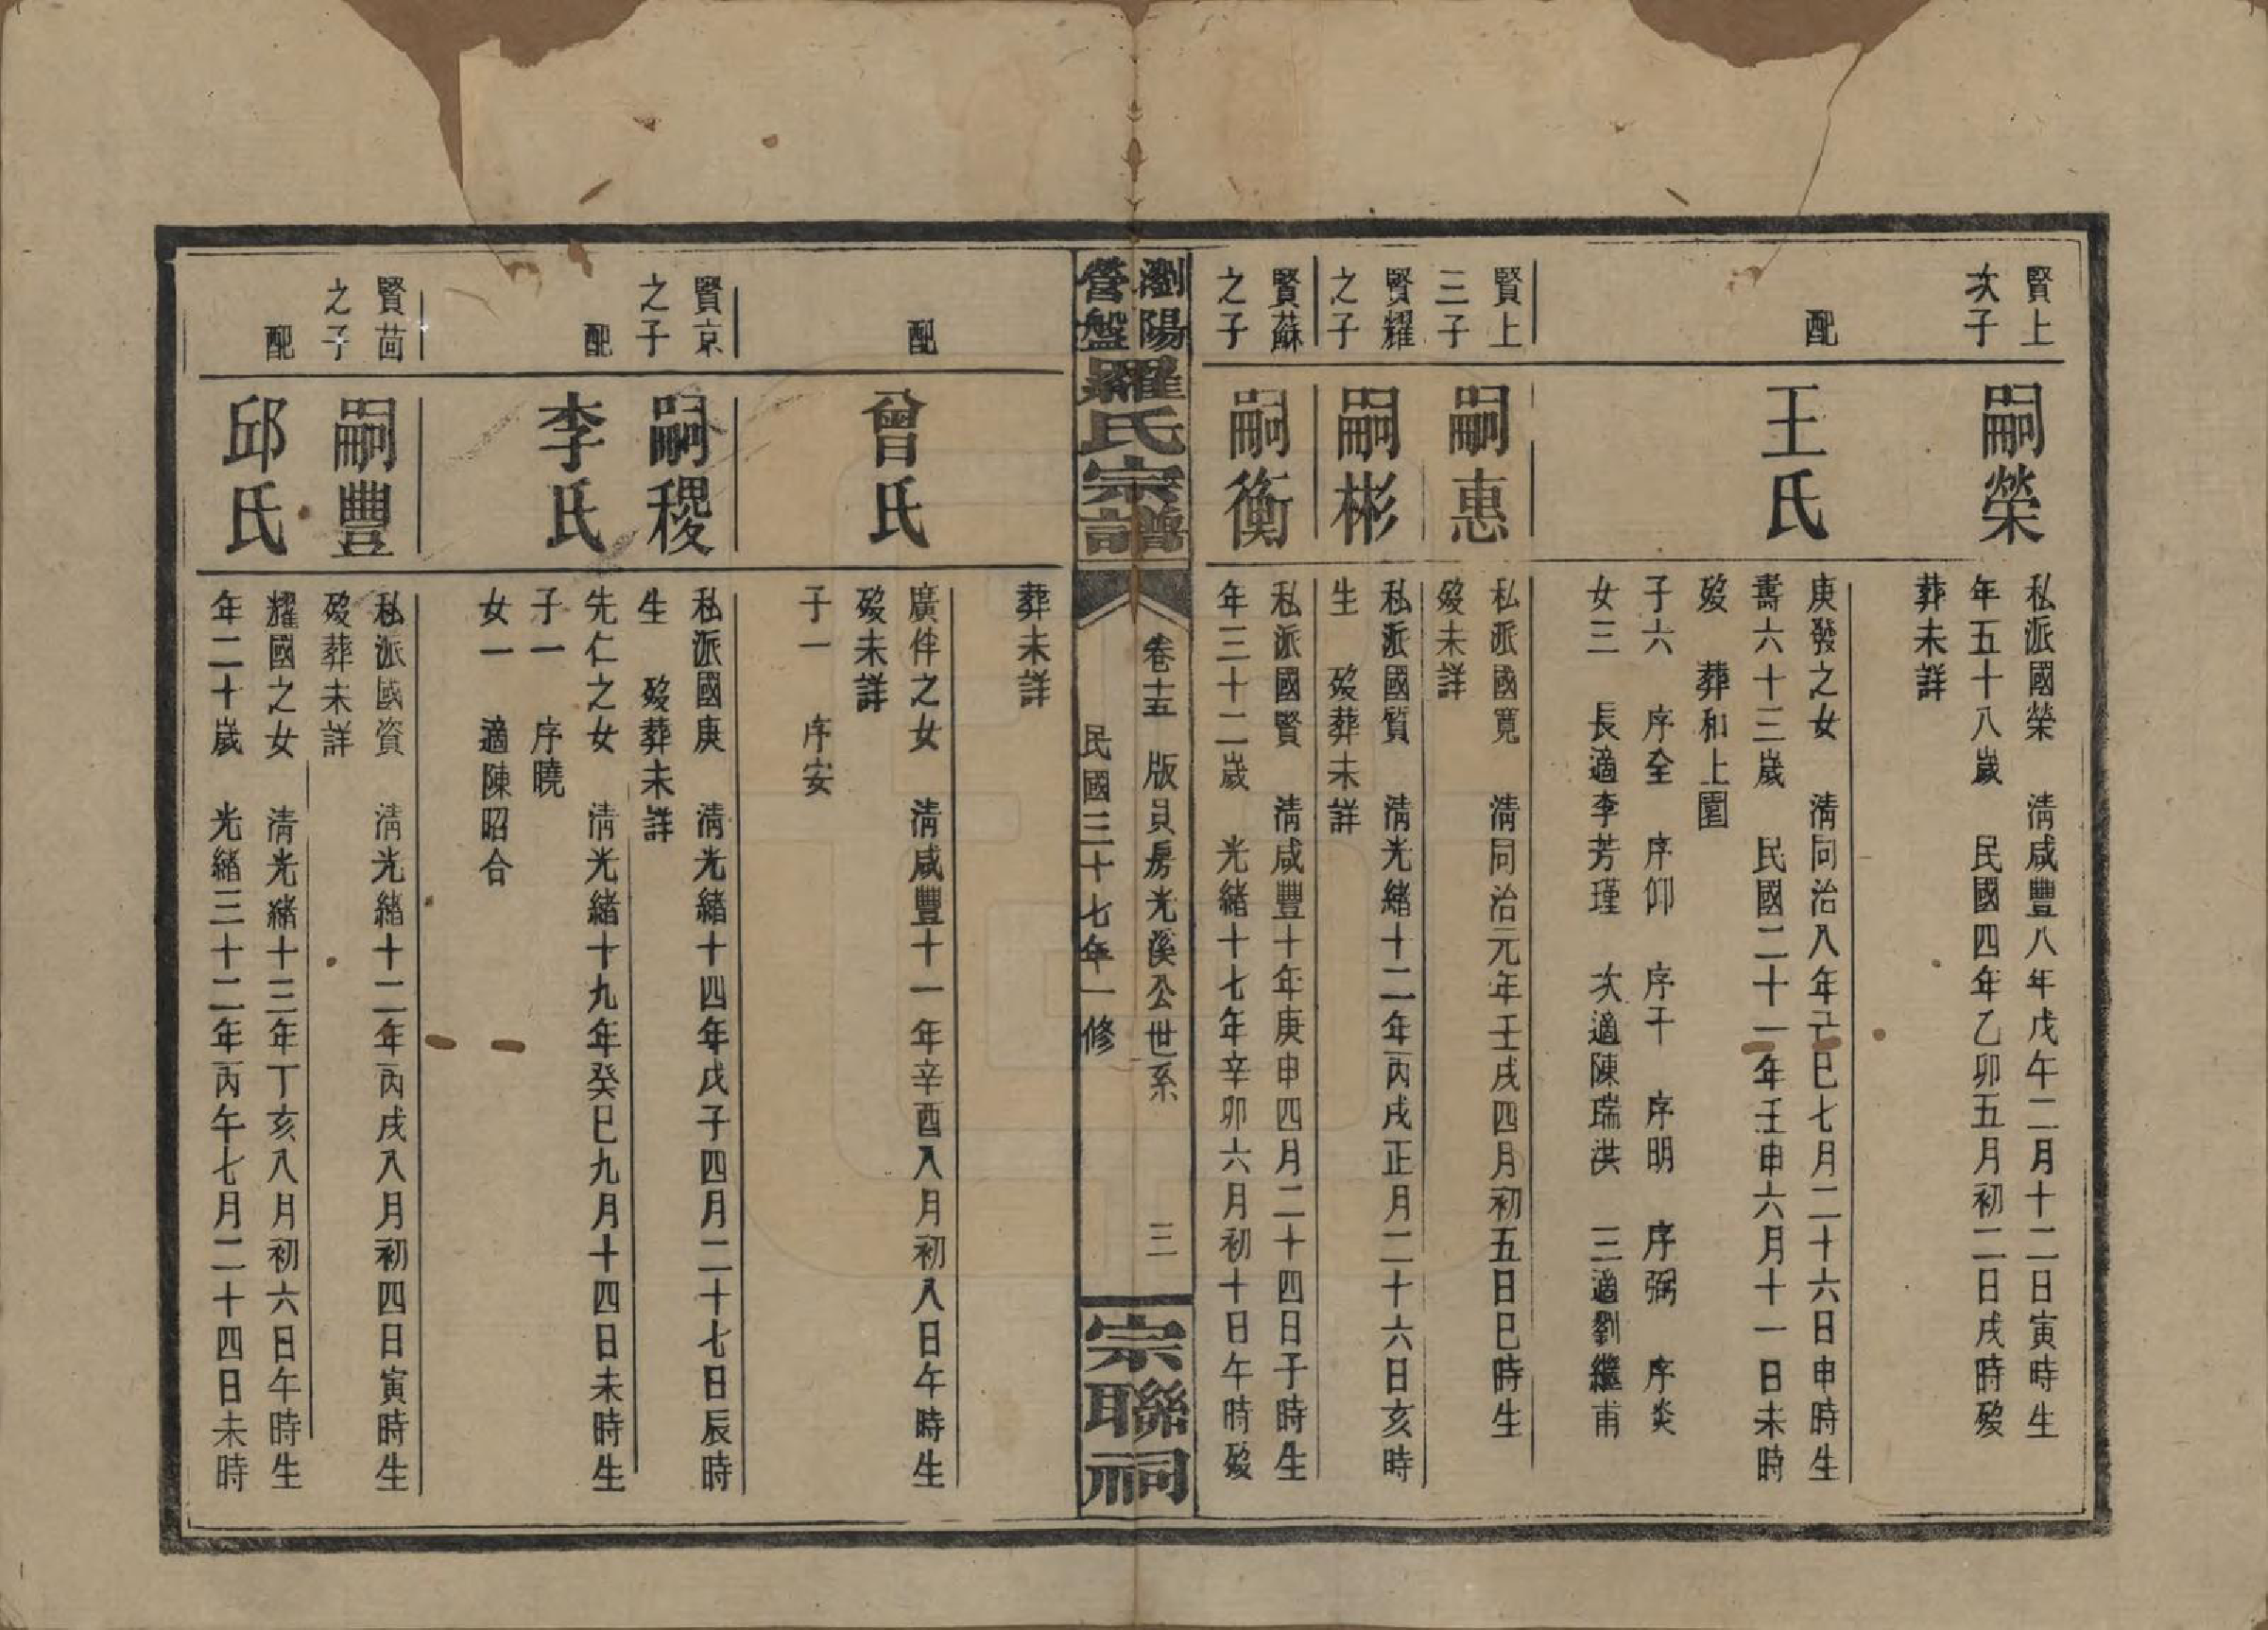 賢上
次子
嗣榮
私派國榮　清咸豐八年戊午二月十二日寅時生
年五十八歲　民國四年乙卯五月初二日戌時歿
葬未詳
配
王氏
庚發之女　清同治八年己巳七月二十六日申時生
壽六十三歲　民國二十一年壬申六月十一日未時
歿　葬和上圍
子六　序全　序仰　序干　序明　序弼　序炎
女三　長適李芳瑾　次適陳瑞洪　三適劉繼甫
賢上
三子
嗣惠
私派國寬　清同治元年壬戌四月初五日巳時生
歿未詳
賢耀
之子
嗣彬
私派國質　清光緒十二年丙戌正月二十六日亥時
生　歿葬未詳
賢蘇
之子
嗣衡
私派國賢　清咸豐十年庚申四月二十四日子時生
年三十二歲　光緒十七年辛卯六月初十日午時歿
瀏陽
營盤
羅氏宗譜
卷十五　版貝房光溪公世系　三
民國三十七年一修
宗聯祠
葬未詳
配
曾氏
廣伴之女　清咸豐十一年辛酉八月初八日午時生
歿未詳
子一　序安
賢京
之子
嗣稷
私派國庚　清光緒十四年戊子四月二十七日辰時
生　歿葬未詳
配
李氏
先仁之女　清光緒十九年癸巳九月十四日未時生
子一　序曉
女一　適陳昭合
賢茴
之子
嗣豐
私派國資　清光緒十二年丙戌八月初四日寅時生
歿葬未詳
配
邱氏
耀國之女　清光緒十三年丁亥八月初六日午時生
年二十歲　光緒三十二年丙午七月二十四日未時